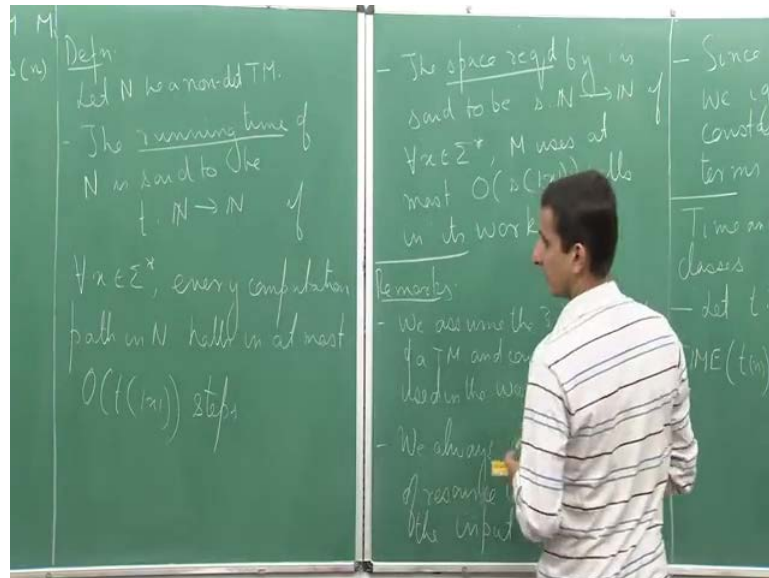 M M
s(n)
Defn.
Let N be a non-det TM.
- The running time of
N is said to be
t : ℕ → ℕ if
∀x ∈ Σ*, every computation
path in N halts in at most
O(t(|x|)) steps
- The space reqd by is
said to be s : ℕ → ℕ if
∀x ∈ Σ*, M uses at
most O(s(|x|)) cells
in its work
Remarks.
- We assume the
of a TM and
used in the
- We always
of resource
the input
- Since
We
terms
Time an
classes
- Let t
TIME(t(n))